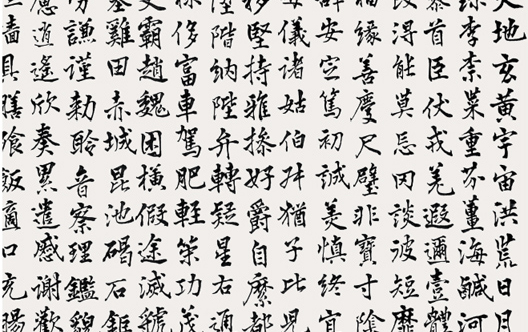 天地玄黃宇宙洪荒日月
珍李柰菜重芥薑海鹹河
黎首臣伏戎羌遐邇壹體
改得能莫忘罔談彼短靡
福緣善慶尺璧非寶寸陰
辭安定篤初誠美慎終宜
母儀諸姑伯叔猶子比兒
移堅持雅操好爵自縻都
陞階納陛弁轉疑星右通
祿侈富車駕肥輕策功茂
更霸趙魏困橫假途滅虢
塞雞田赤城昆池碣石鉅
勞謙謹勅聆音察理鑑貌
慮逍遙欣奏累遣慼謝歡
垣牆具膳飡飯適口充腸